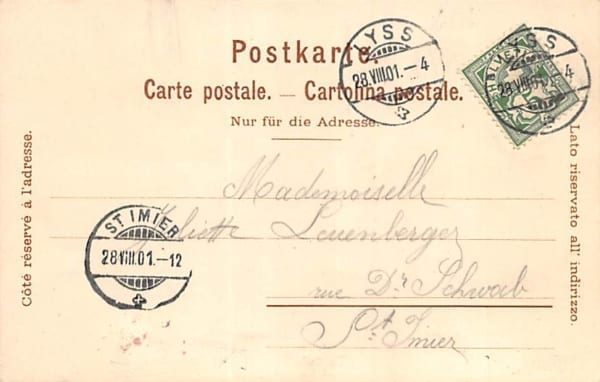 Postkarte.
Carte postale. — Cartolina postale.
Nur für die Adresse.
LYSS
28.VIII.01.–4
LYSS
28.VIII.01.–4
HELVETIA
Côté réservé à l'adresse.
Lato riservato all' indirizzo.
ST IMIER
28.VIII.01.–12
Mademoiselle
Juliette Leuenberger
rue Dr Schwab
St. Imier